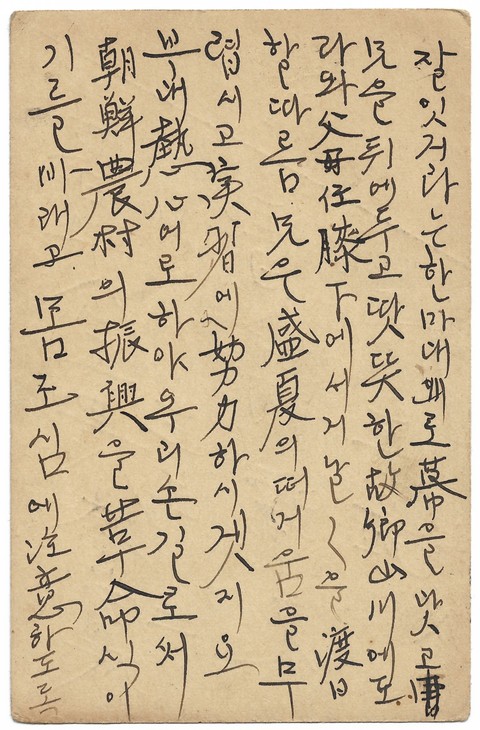 잘잇거라는한마대로幕을맛고
兄을뒤에두고땃뜻한故鄕山川에도
라와父母任膝下에서날〱을渡日
할따름 兄은盛夏의떠거움을무
렵시고実習에努力하시겟지요
부대熱心어로하야우리손길로써
朝鮮農村의振興을革命식이
기를바래고 몸조심에注意하도록